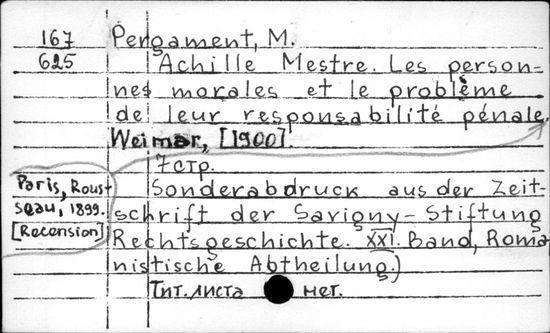 167 Pergament, M.
625 Achille Mestre. Les person-
nes morales et le problème
de leur responsabilité pénale.
Weimar, [1900].
7 стр.
Paris, Rous-
seau, 1899.
[Recension]
Sonderabdruck aus der Zeit-
schrift der Savigny-Stiftung
Rechtsgeschichte. XXI. Band, Roma-
nistische Abtheilung.)
Тит. листа нет.